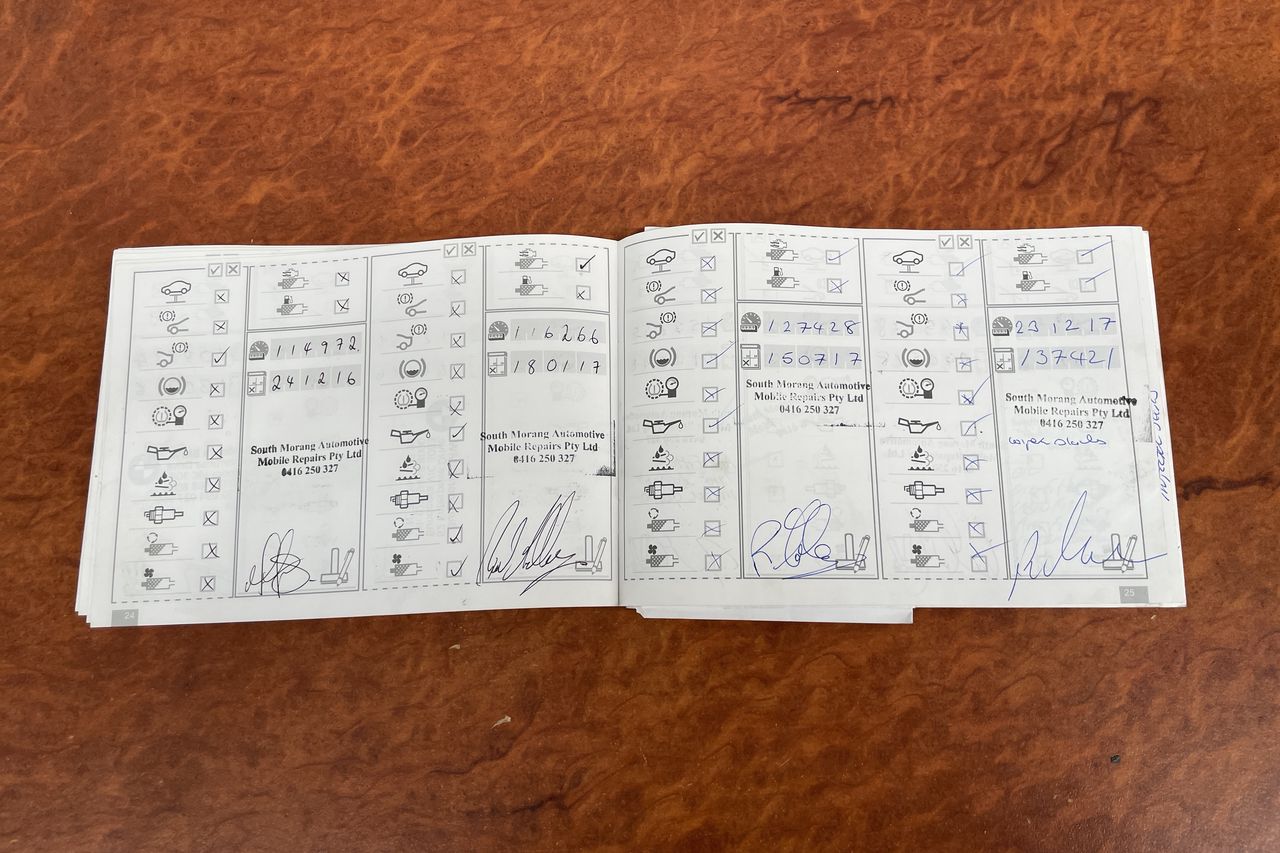 114972
241216
South Morang Automotive
Mobile Repairs Pty Ltd
0416 250 327
24
116266
180117
South Morang Automotive
Mobile Repairs Pty Ltd
0416 250 327
127428
150717
South Morang Automotive
Mobile Repairs Pty Ltd
0416 250 327
231217
137421
South Morang Automotive
Mobile Repairs Pty Ltd
0416 250 327
wiper blades
25